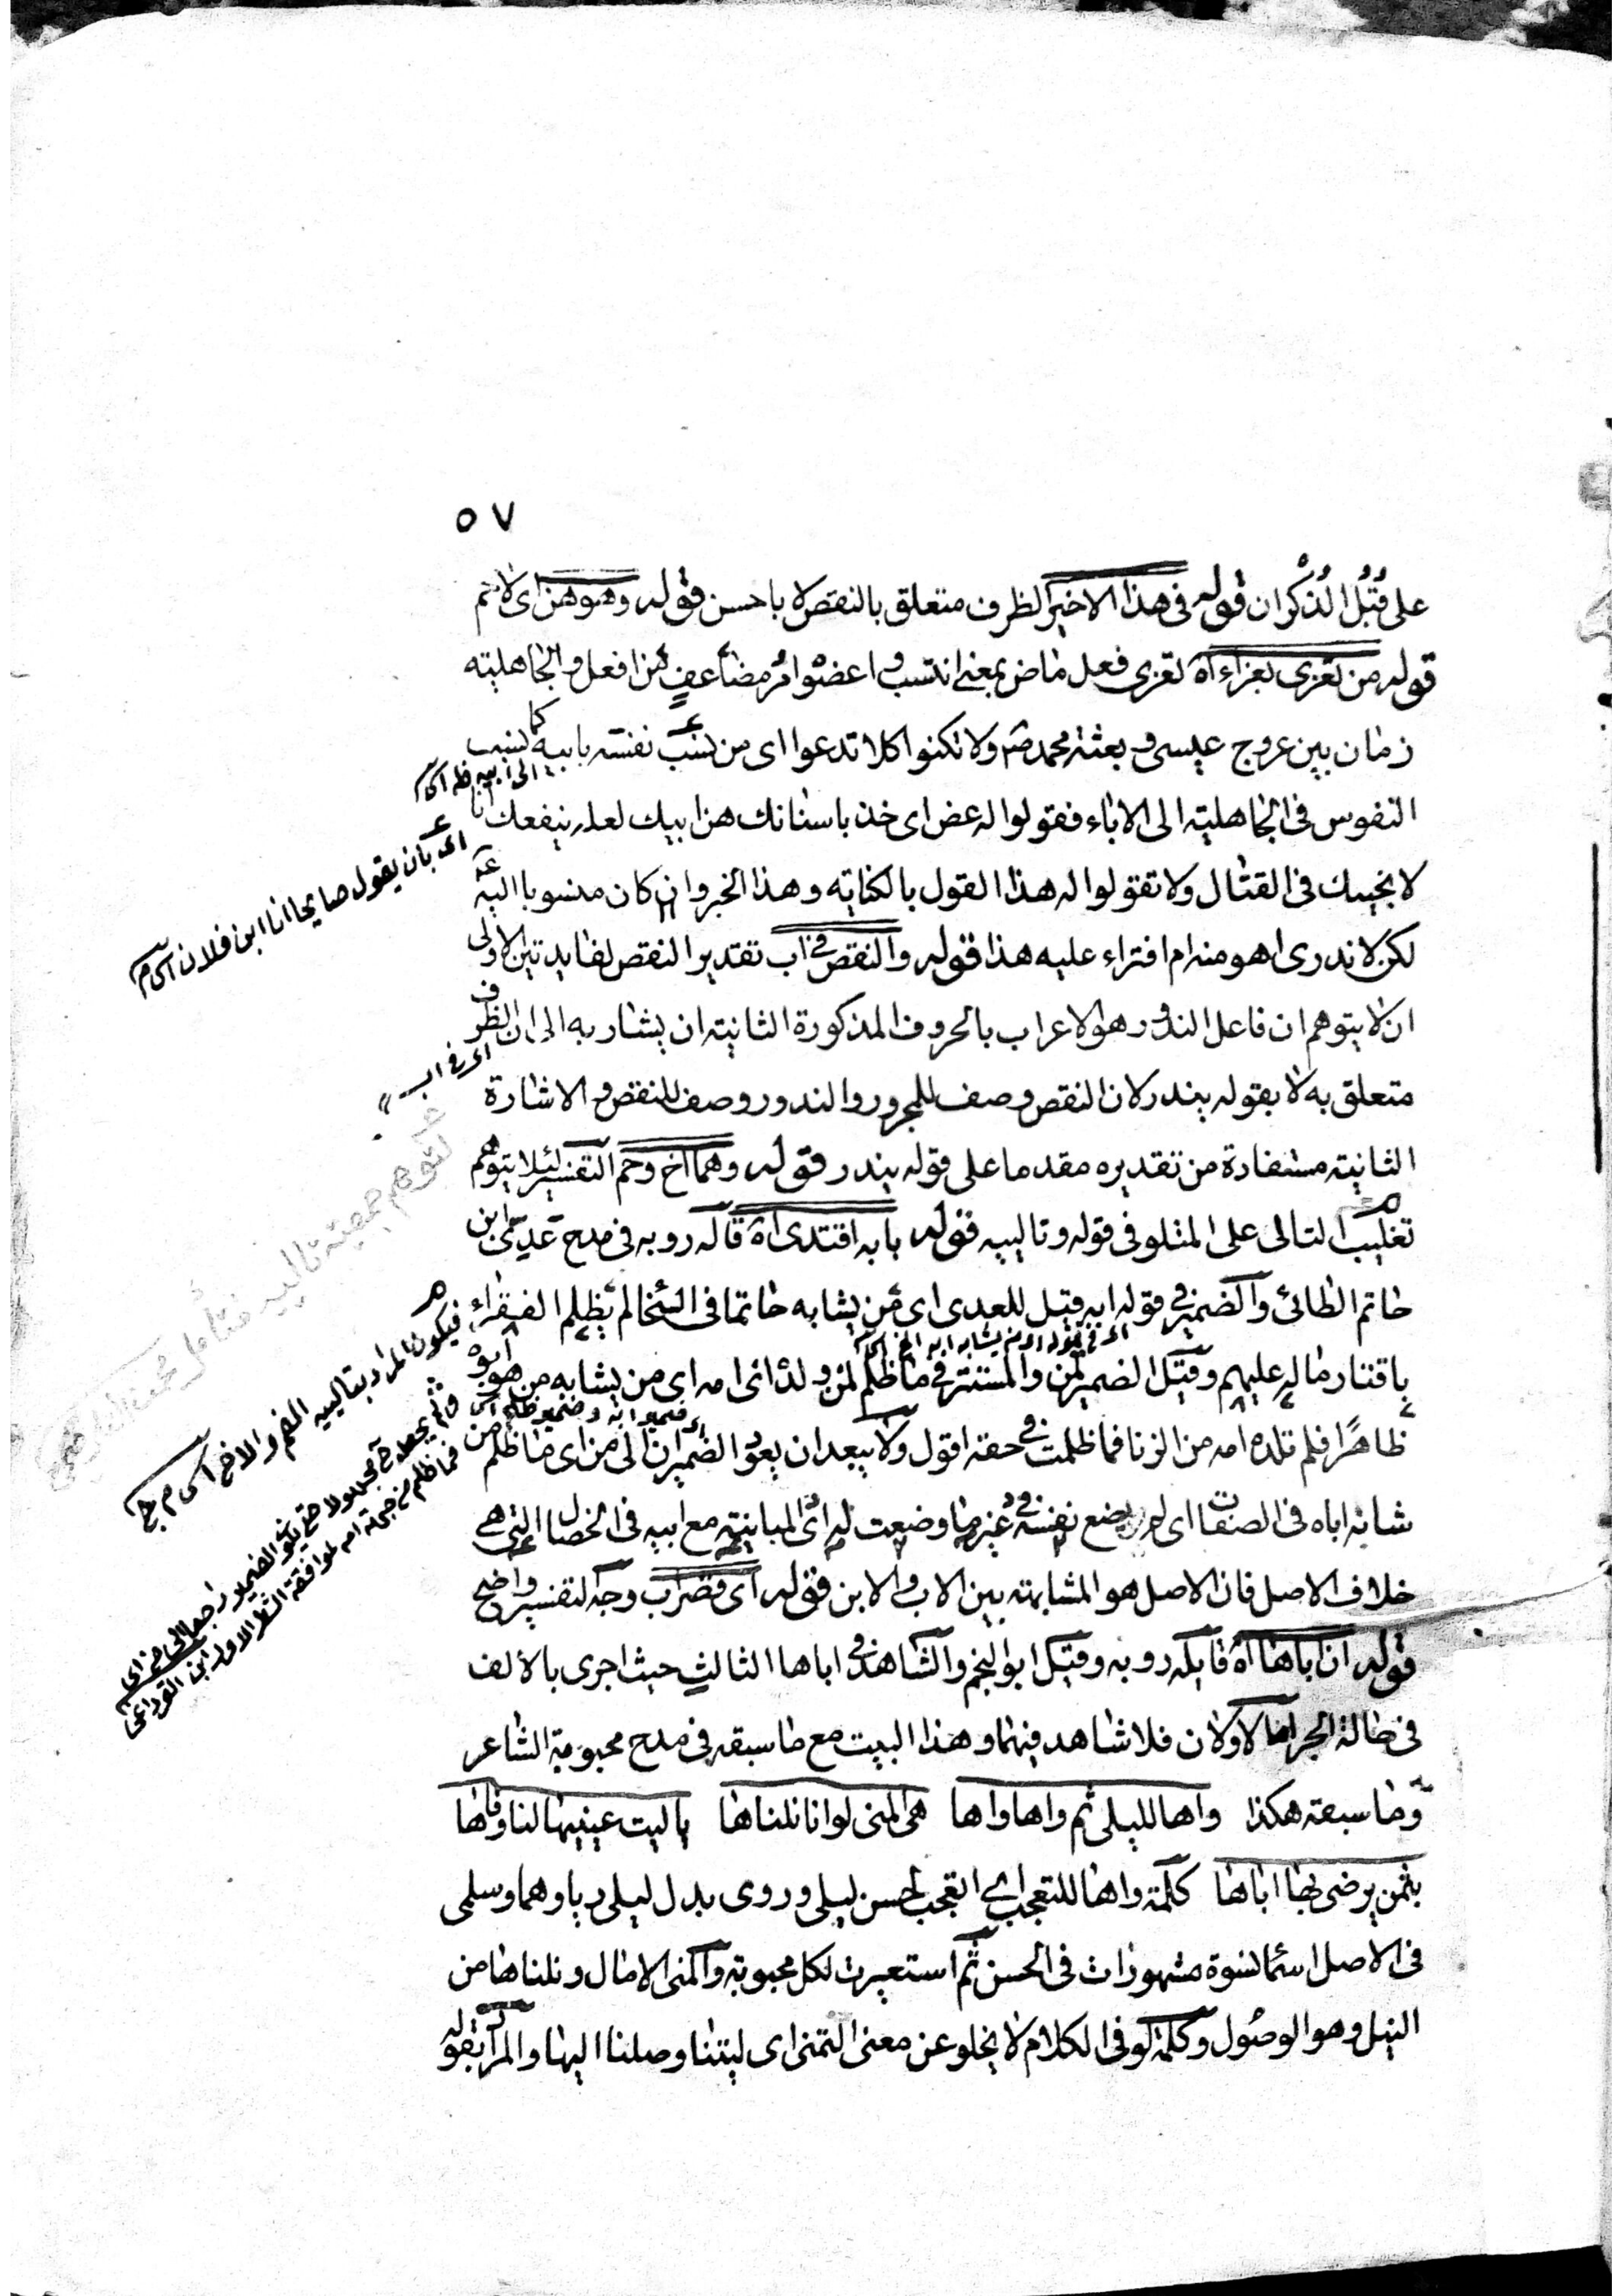 ٥٧
على قُبُل الذكران قوله فى هذا الاخير الظرف متعلق بالنقص لا باحسن قوله وهو هن اى لاتم
قوله من تعزى بعزاء اه تعزى فعل ماض بمعنى انتسب و اعضوا امر مضاعف من افعل والجاهلية
زمان بين عروج عيسى و بعثة محمد ص ولا تكنوا كلا تدعوا اى من نسب نفسه بابيه كما نسب
النفوس فى الجاهلية الى الاباء فقولوا له عض اى خذ باسنانك هن ابيك لعله ينفعك انا
لا نجيبك فى القتال ولا تقولوا له هذا القول بالكناية وهذا الخبر وان كان منسوبا اليه
لكن لا ندرى اهو منه ام افتراء عليه هذا قوله والنقص فى اب تقدير النقص لفايدتين الاولى
ان لا يتوهم ان فاعل الندور هو الاعراب بالحروف المذكورة الثانية ان يشار به الى ان الظرف
متعلق به لا بقوله يندر لان النقص وصف للمجرور والندور وصف للنقص و الاشارة
الثانية مستفادة من تقديره مقدما على قوله يندر قوله وهما اخ وحم التفسير لئلا يتوهم
تغليب التالى على المتلو فى قوله وتالييه قوله بابه اقتدى اه قاله روبه فى مدح عدى ابن
حاتم الطائى والضمير فى قوله ابه قيل للعدى اى من يشابه حاتما فى السخا لم يظلم الفقراء
باقتار ماله عليهم وقيل الضمير لمن والمستتر فى ما ظلم لمن ولدا اى امه اى من يشابه من هو ابوه
ظاهرا فلم تلده امه من الزنا فما ظلمت فى حقه اقول ولا يبعد ان يعود الضميران الى من اى ما ظلم من
شابه اباه فى الصفات اى لم يضع نفسه فى غير ما وضعت له اى المباينة مع ابيه فى الخصال التى هى
خلاف الاصل فان الاصل هو المشابهة بين الاب والابن قوله اى قصر اب وجه التفسير واضح
قوله ان اباها اه قايله روبه وقيل ابو النجم والشاهد فى اباها الثالث حيث اجرى بالالف
فى حالة الجر اما الاولان فلا شاهد فيهما و هذا البيت مع ما سبقه فى مدح محبوبة الشاعر
وما سبقه هكذا واها لليلى ثم واها واها هى المنى لو اننا نلناها ياليت عينيها لنا وفاها
بثمن يرضى بها اباها كلمة واها للتعجب اى اتعجب لحسن ليلى و روى بدل ليلى ريا وهما وسلمى
فى الاصل اسما نسوة مشهورات فى الحسن ثم استعيرت لكل محبوبة والمنى الامال و نلناها من
النيل وهو الوصول وكلمة لو فى الكلام لا يخلو عن معنى التمنى اى ليتنا وصلنا اليها والمراد بقوله
اى بان يقول صايحا انا ابن فلان
اى فى اب
فيكون المراد بتالييه الفم والاخ